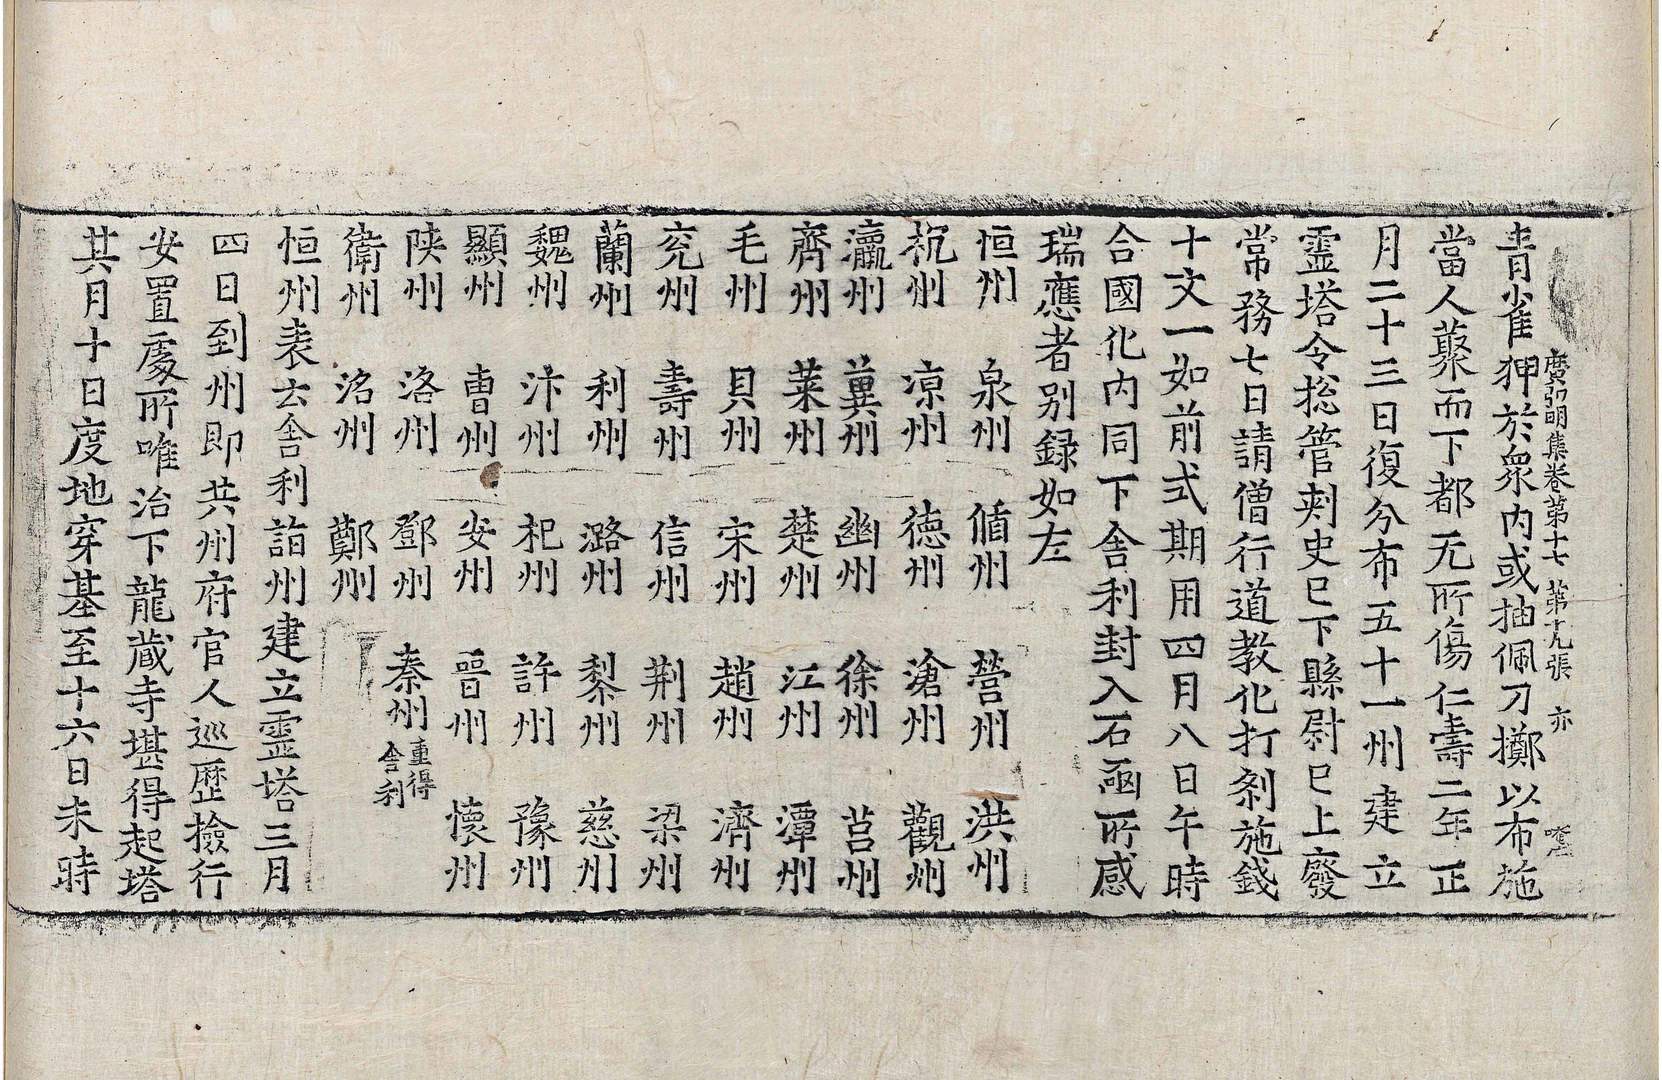 廣弘明集卷第十七 第十九張 亦
青雀狎於衆内或抽佩刀擲以布施
當人藂而下都无所傷仁壽二年正
月二十三日復分布五十一州建立
霊塔令捴管刺史巳下縣尉巳上廢
常務七日請僧行道教化打刹施錢
十文一如前式期用四月八日午時
合國化内同下舎利封入石凾所感
瑞應者别録如左
恒州 泉州 循州 營州 洪州
杭州 凉州 德州 滄州 觀州
瀛州 冀州 幽州 徐州 莒州
齊州 萊州 楚州 江州 潭州
毛州 貝州 宋州 趙州 濟州
兖州 壽州 信州 荆州 梁州
蘭州 利州 潞州 黎州 慈州
魏州 汴州 杞州 許州 豫州
顯州 曹州 安州 晉州 懷州
陜州 洛州 鄧州 秦州 重得舎利
衛州 洺州 鄭州
恒州表云舎利詣州建立霊塔三月
四日到州即共州府官人巡歷撿行
安置處所唯治下龍藏寺堪得起塔
其月十日度地穿基至十六日未時